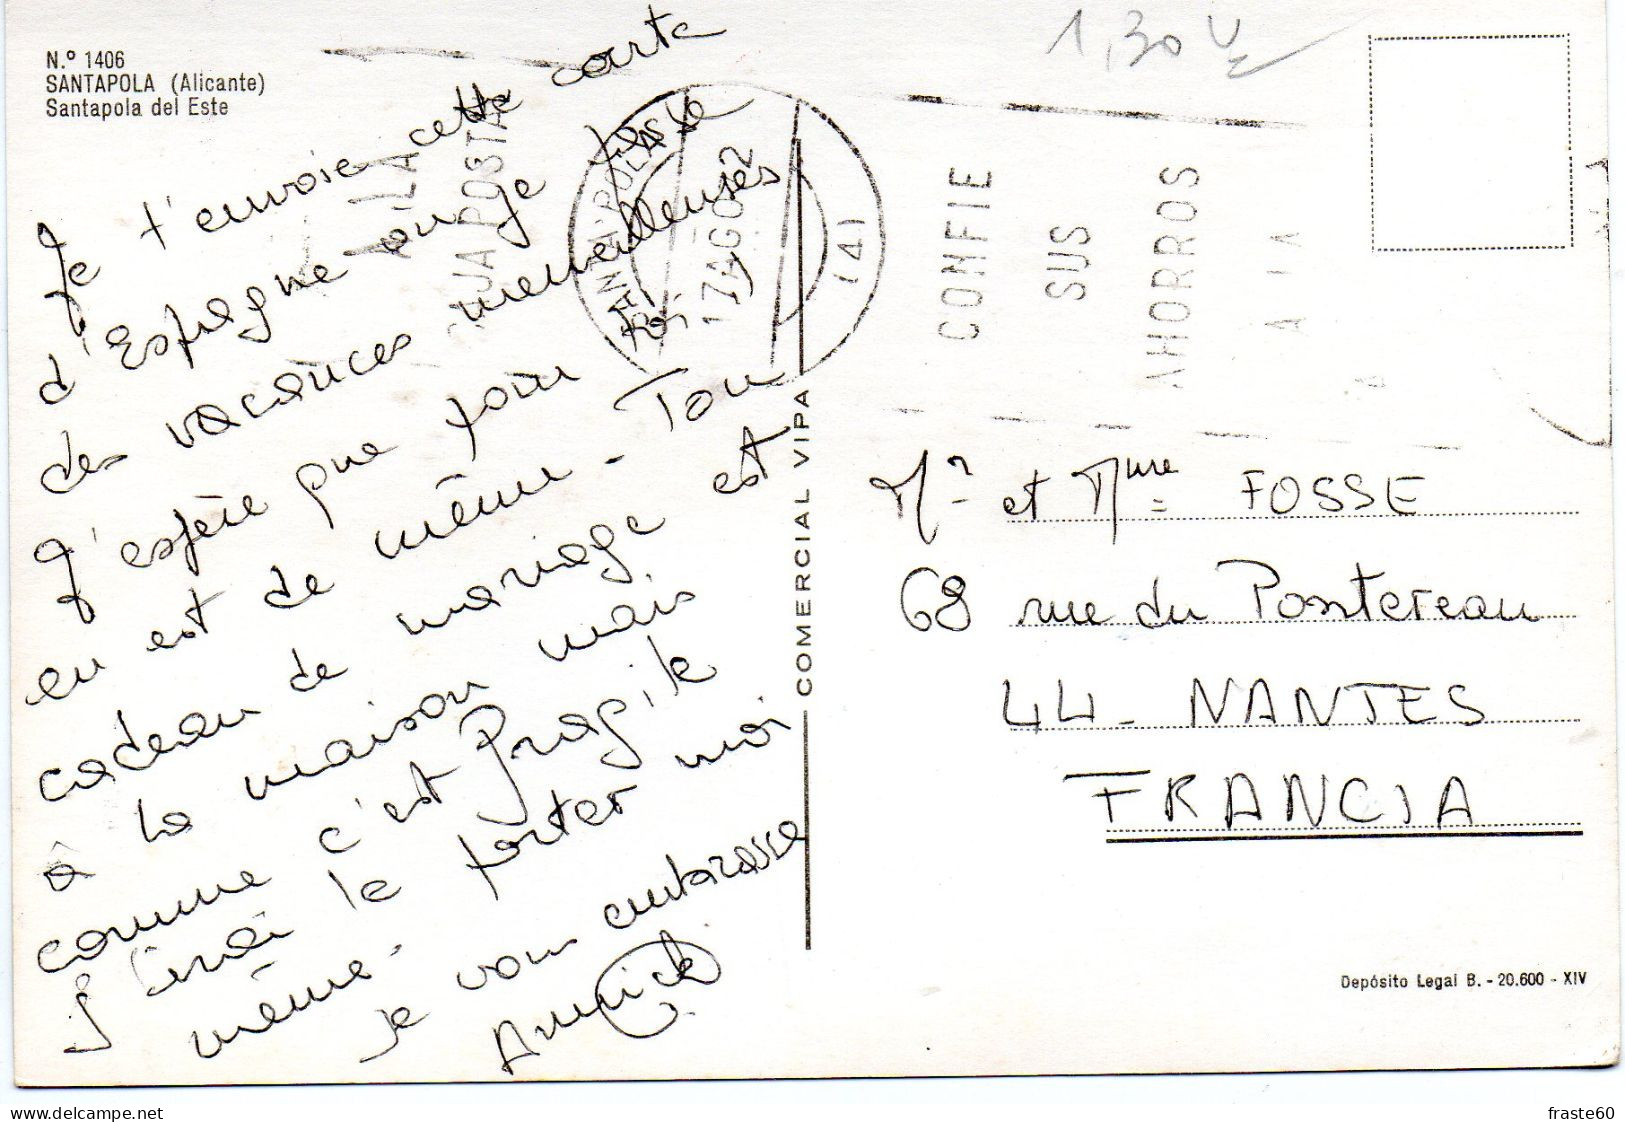 N.º 1406
SANTAPOLA (Alicante)
Santapola del Este
1,30
Je t'envoie cette carte
d'Espagne ou je passe
des vacances merveilleuses
J'espère que pour toi, il
en est de même - Ton
cadeau de mariage est
à la maison mais
comme c'est fragile
J'irai le porter moi
même.
Je vous embrasse
Annick
SANTA POLA
17 AGO
(4)
CONFIE
SUS
AHORROS
A LA
CAJA POSTAL
COMERCIAL VIPA
Mr et Mme FOSSE
68 rue du Pontereau
44 - NANTES
FRANCIA
Depósito Legal B. - 20.600 - XIV
delcampe.net
fraste60